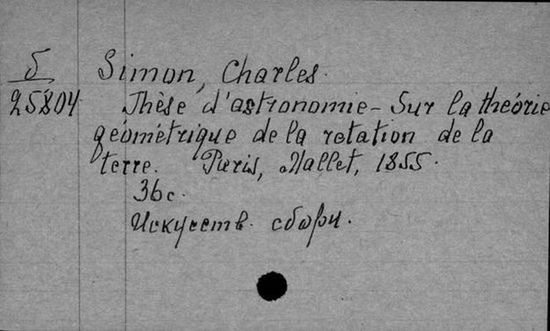 Б Simon, Charles.
25804 Thèse d'astronomie - Sur la théorie
géométrique de la rotation de la
terre. Paris, Mallet, 1855.
36 с.
Искусств. сборн.